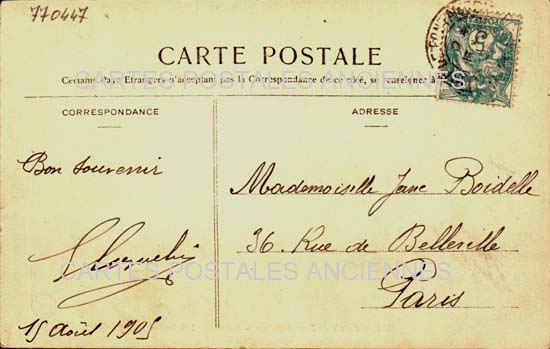 770447
CARTE POSTALE
Certains Pays Etrangers n'acceptent pas la Correspondance de ce côté, se renseigner à
CORRESPONDANCE
ADRESSE
Bon souvenir
15 Août 1905
Mademoiselle Jane Boidelle
36. Rue de Belleville
Paris
CARTES POSTALES ANCIENNES
CARTES POSTALES ANCIENNES